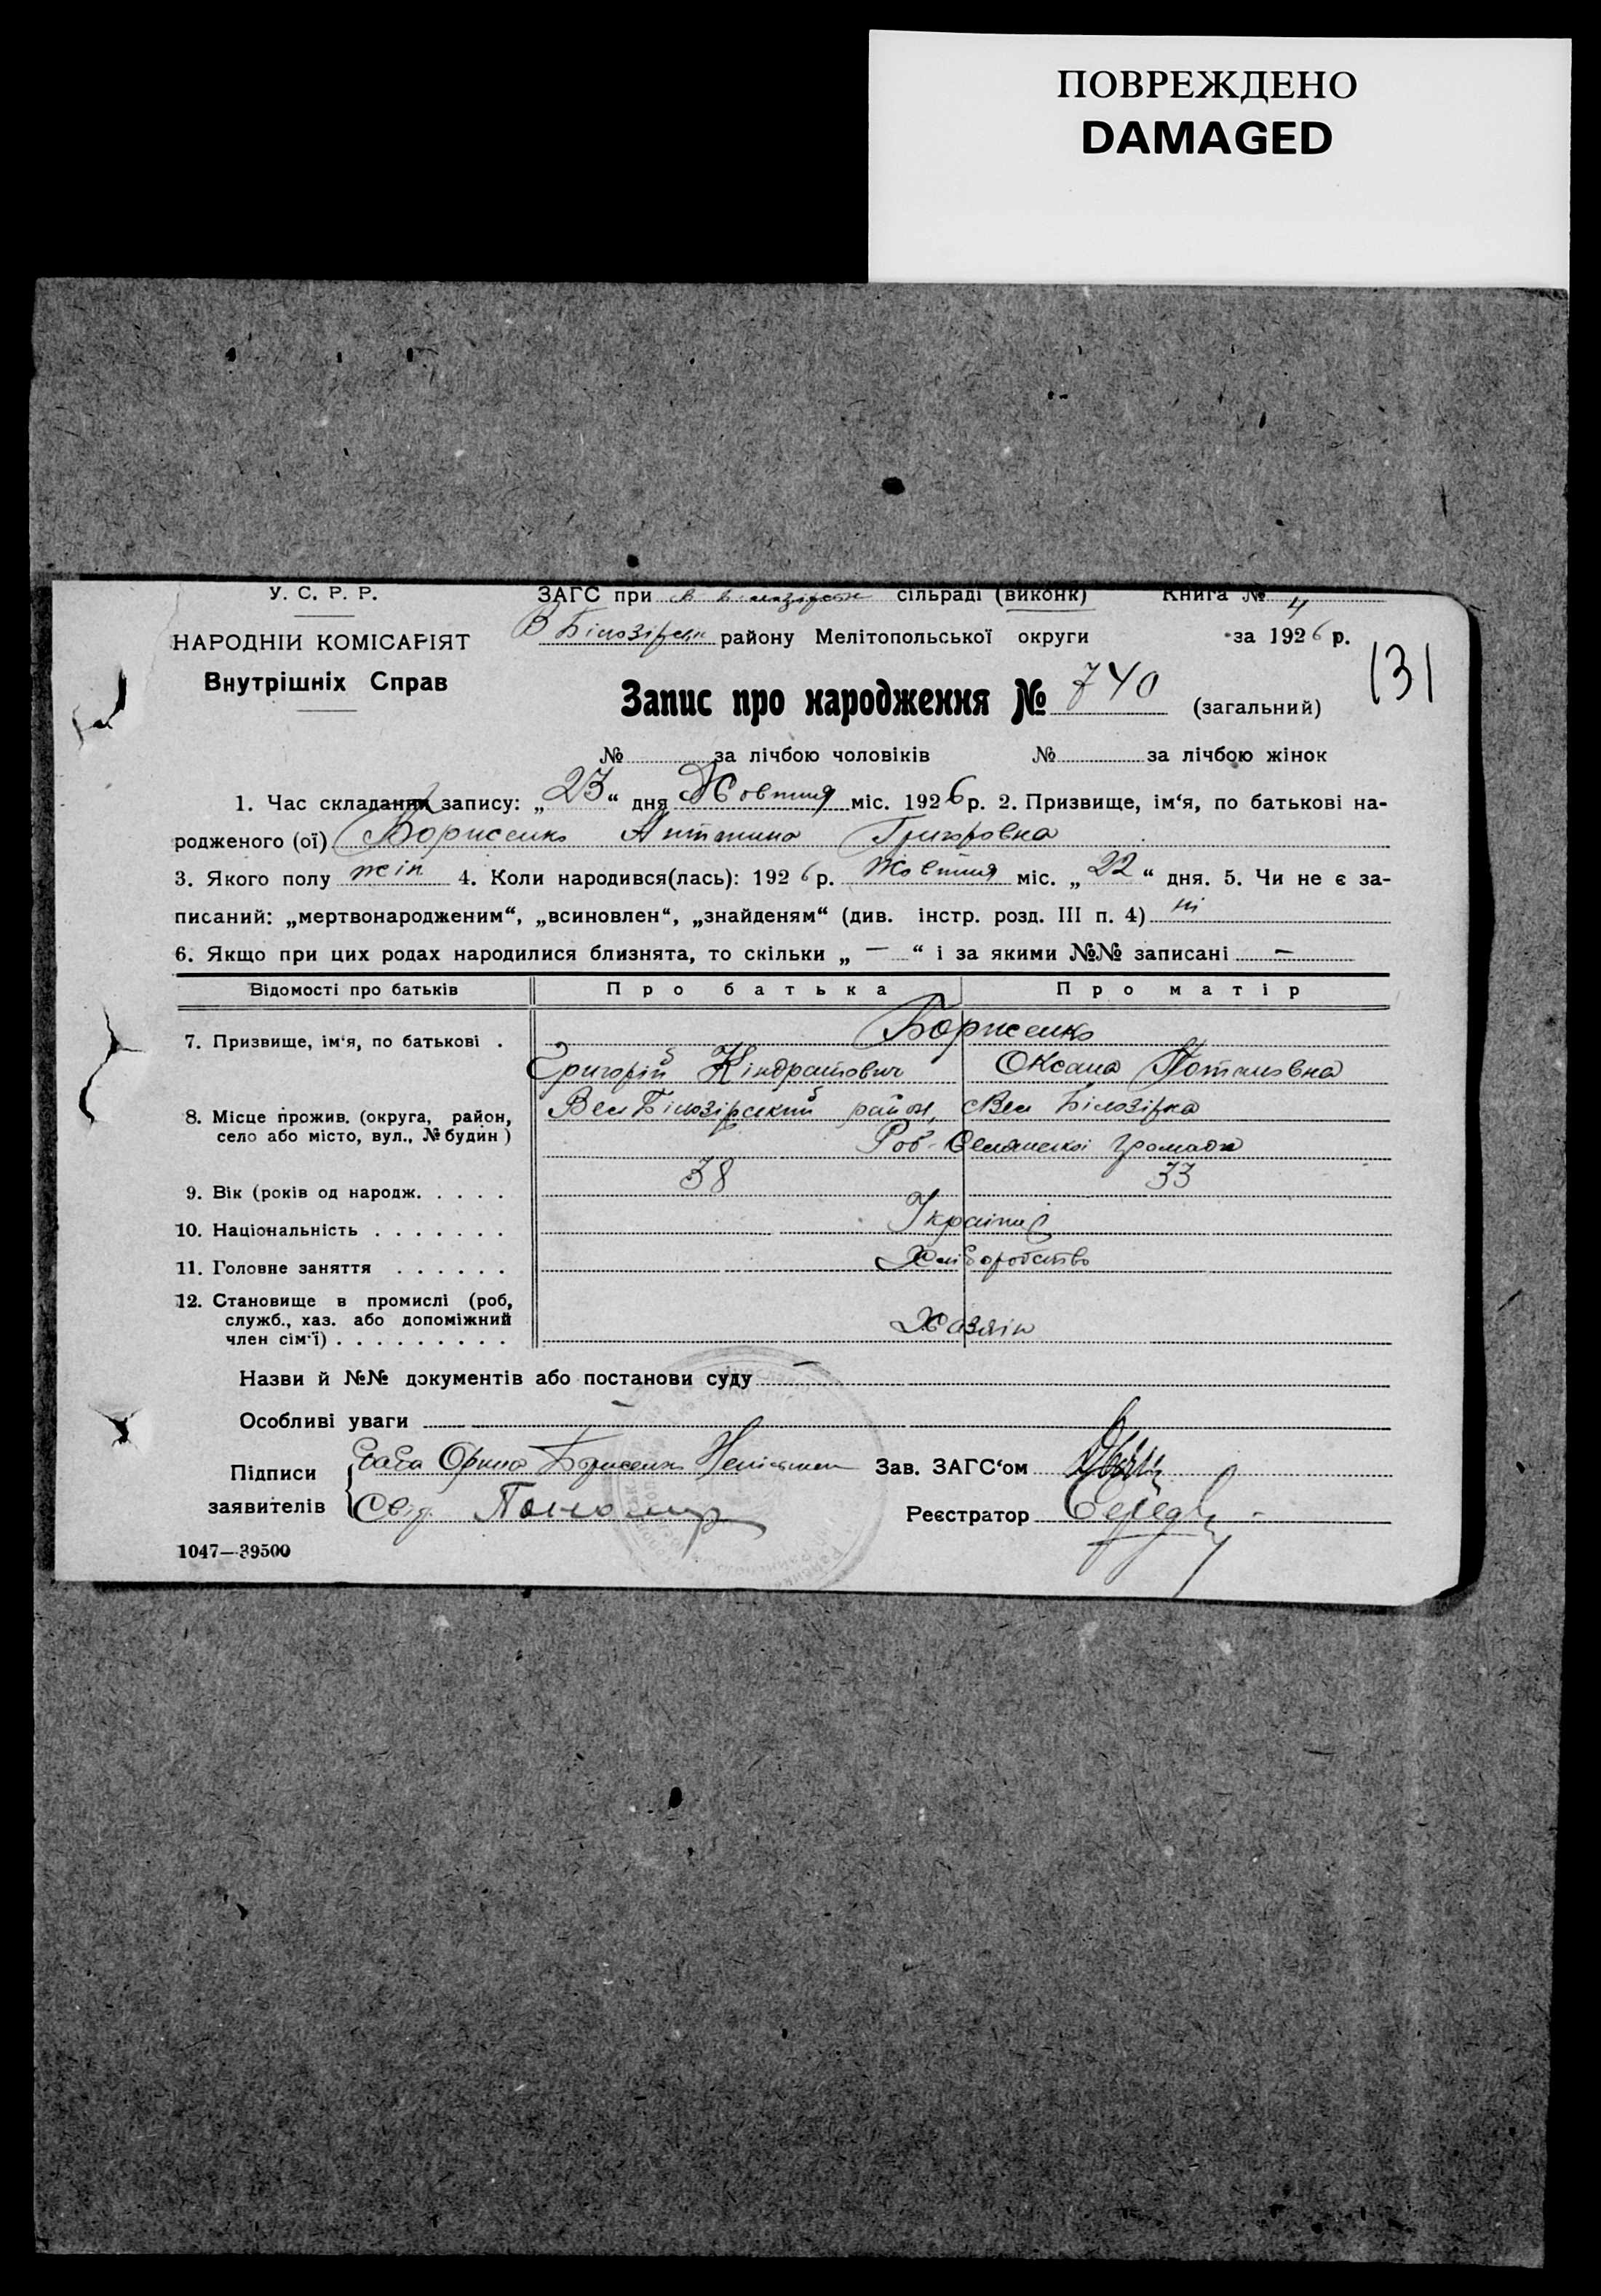 ПОВРЕЖДЕНО
DAMAGED
У. С. Р. Р.
ЗАГС при сільраді (виконк) Книга № 4
НАРОДНІЙ КОМІСАРІЯТ
В Білозірськ району Мелітопольської округи за 1926 р.
131
Внутрішніх Справ
Запис про народження № 740 (загальний)
№ за лічбою чоловіків № за лічбою жінок
1. Час складання запису: „23“ дня Жовтня міс. 1926 р. 2. Призвище, ім‘я, по батькові на-
родженого (ої) Борисенко Григоровна
3. Якого полу жін 4. Коли народився(лась): 1926 р. Жовтня міс. „22“ дня. 5. Чи не є за-
писаний: „мертвонародженим“, „всиновлен“, „знайденям“ (див. інстр. розд. III п. 4) ні
6. Якщо при цих родах народилися близнята, то скільки „ — “ і за якими №№ записані —
Відомості про батьків Про батька Про матір
7. Призвище, ім‘я, по батькові . Борисенко
Григорій Кіндратович Оксана Потаповна
8. Місце прожив. (округа, район, село або місто, вул., № будин) Вел Білозірський район, с Вел Білозірка
Роб-Селянської громади
9. Вік (років од народж. . . . . 38 33
10. Національність . . . . . . . Українці
11. Головне заняття . . . . . . Хліборобство
12. Становище в промислі (роб,
служб., хаз. або допоміжний
член сім‘ї) . . . . . . . . . Хазяїн
Назви й №№ документів або постанови суду —
Особливі уваги —
Підписи Баба Орина Борисенко Зав. ЗАГС‘ом
заявителів Свід. Пономар Реєстратор
1047—39500